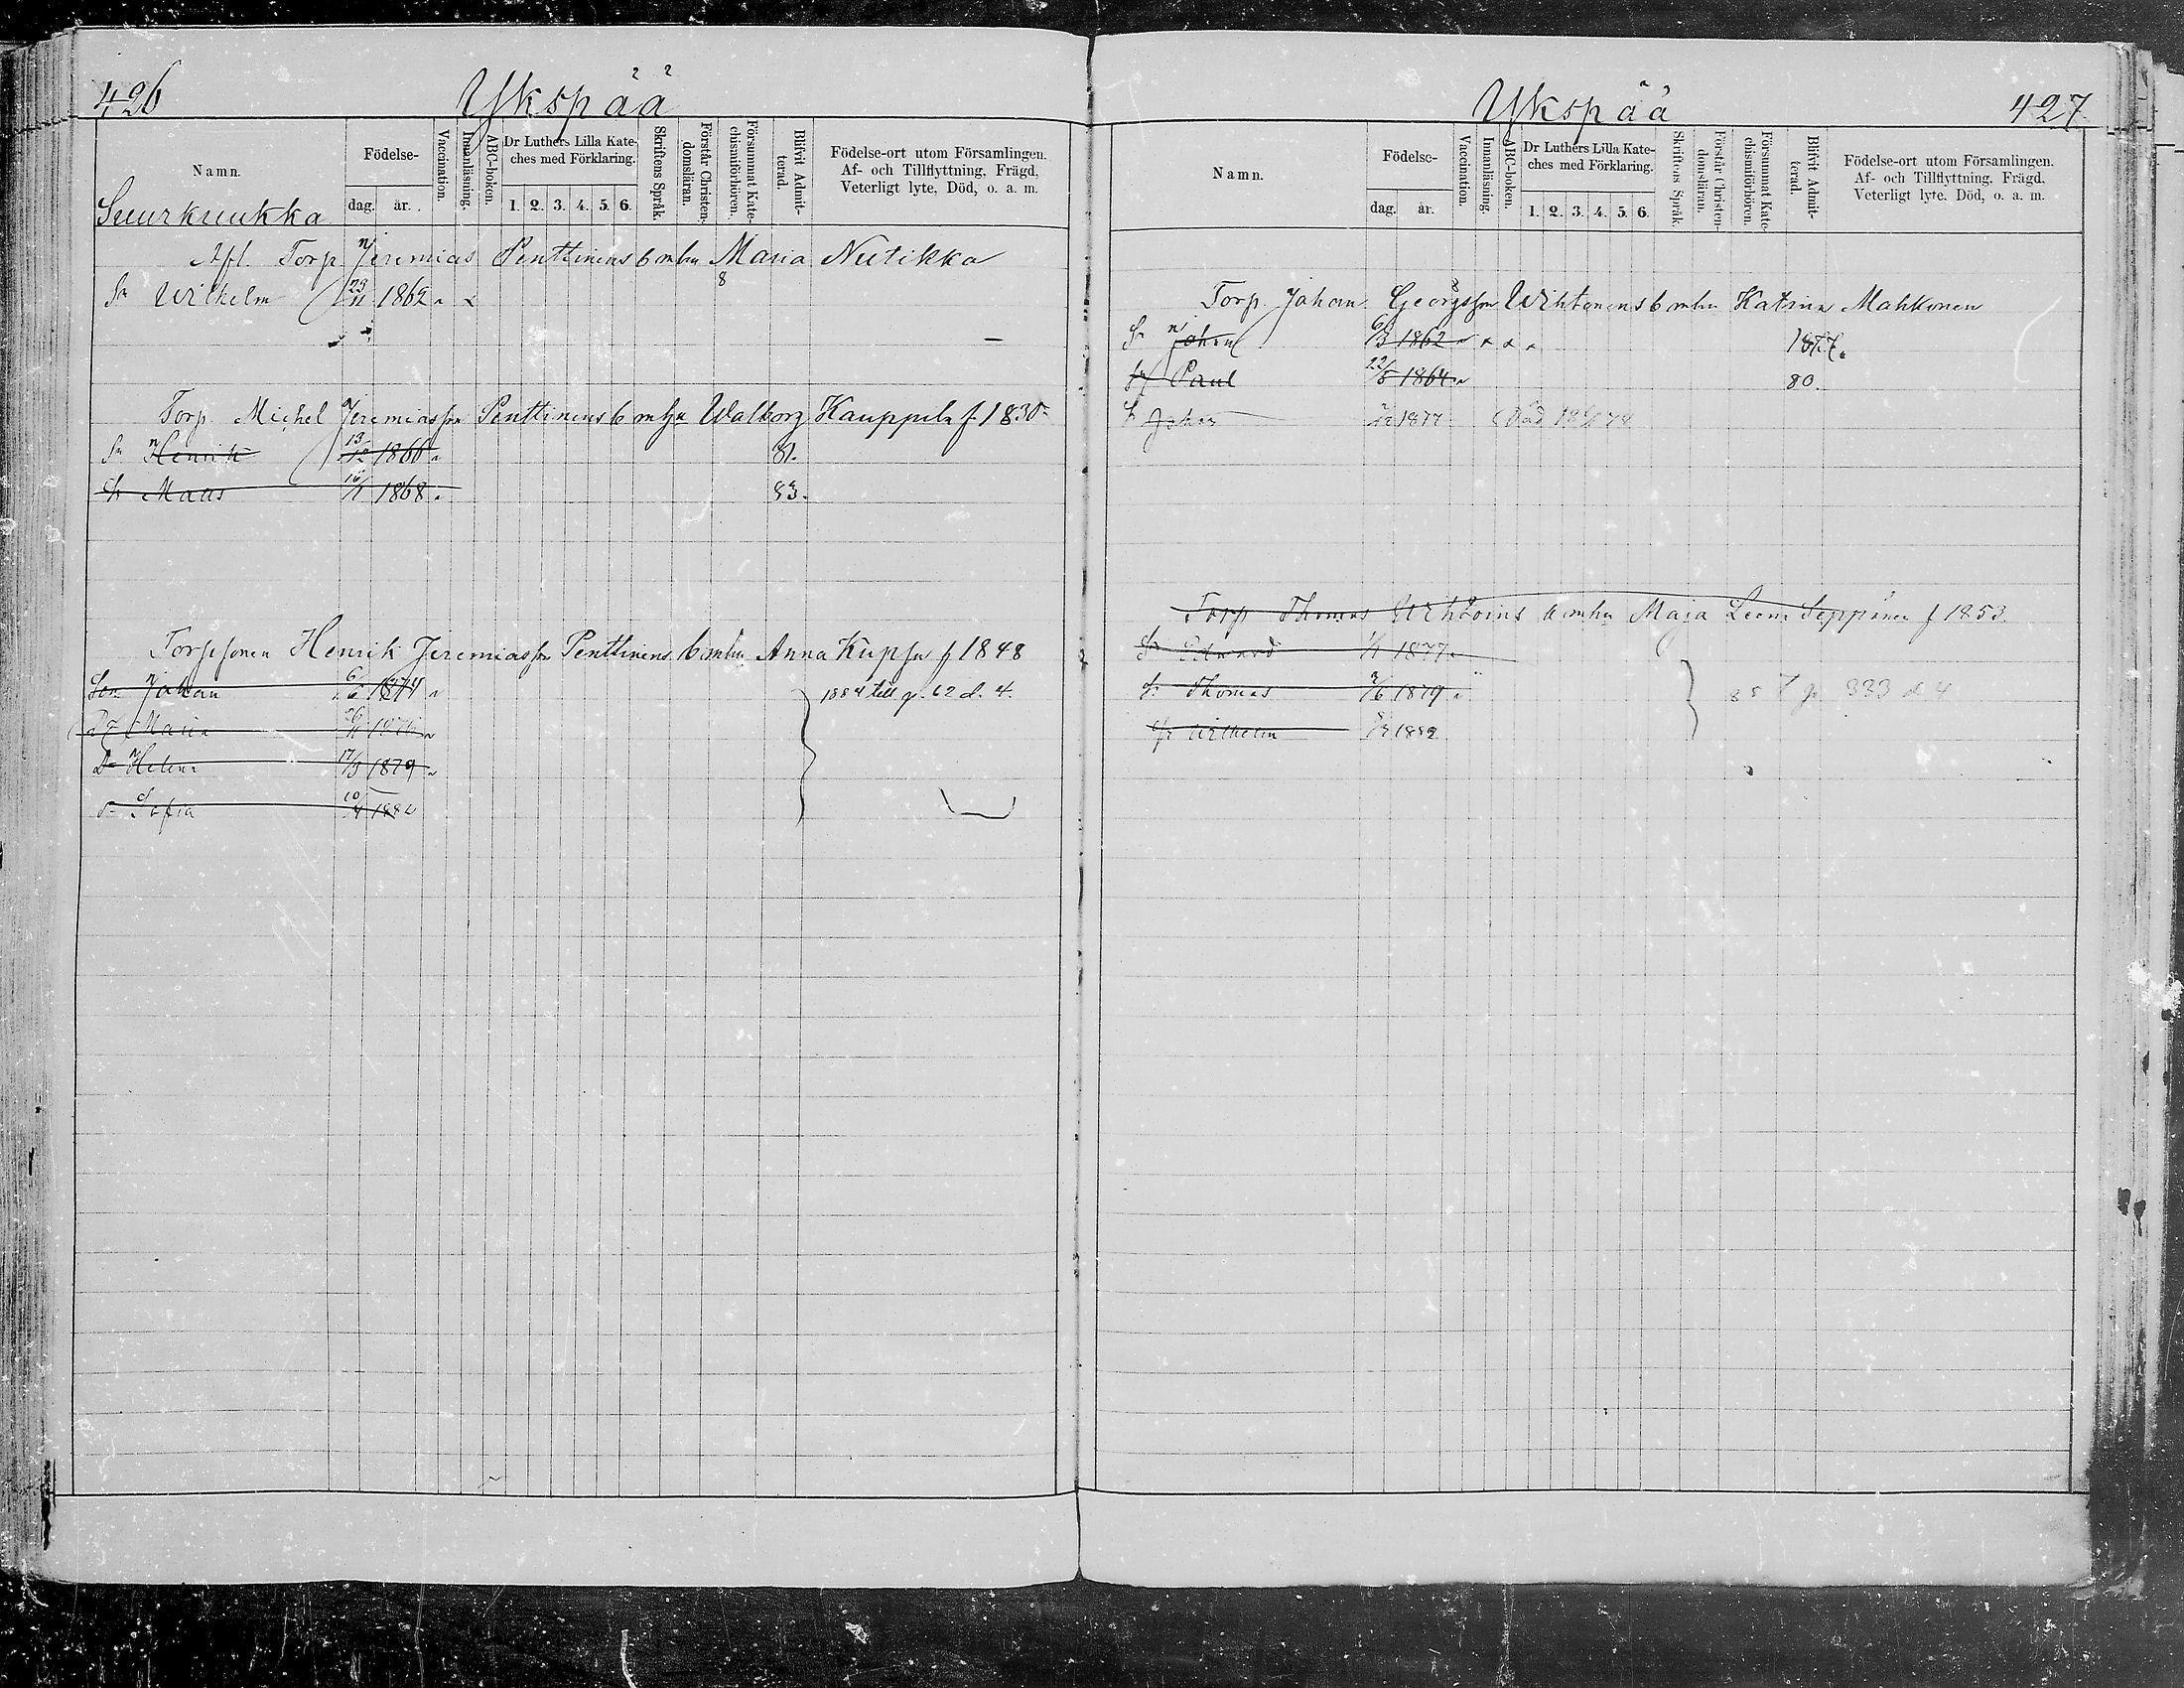 426
Ykspää
Namn.
Födelse-
dag. år.
Vaccination.
Innanläsning.
ABC-boken.
Dr Luthers Lilla Kate-
ches med Förklaring.
1. 2. 3. 4. 5. 6.
Skriftens Språk.
Förstår Christen-
domsläran.
Försummat Kate-
chismiförhören.
Blifvit Admit-
terad.
Födelse-ort utom Församlingen.
Af- och Tillflyttning, Frägd,
Veterligt lyte, Död, o. a. m.
Suurkuukka
Afl. Torp. Jeremias Penttinens b m hu Maria Nutikka
Sn Wilhelm 23/11 1862 8
Torp. Michel Jeremiasson Penttinens b m hu Walborg Kauppila f. 1830
Sn Henrik 13/12 1866 81.
Sn Maas 16/1 1868 83.
Torpsonen Henrik Jeremiasson Penttinens b m hu Anna f 1848
Son Johan 1874 1884 till p. 62 d. 4.
Dr Maria
Dr Helena 17/3 1879
Dr Sofia 10/4 1882
Ykspää
427
Namn.
Födelse-
dag. år.
Vaccination.
Innanläsning
ABC-boken.
Dr Luthers Lilla Kate-
ches med Förklaring.
1. 2. 3. 4. 5. 6.
Skriftens Språk.
Förstår Christen-
domsläran.
Försummat Kate-
chismiförhören.
Blifvit Admit-
terad.
Födelse-ort utom Församlingen.
Af- och Tillflyttning, Frägd,
Veterligt lyte, Död, o. a. m.
Torp. Johan Georgsson Wihtonens b m hu Katrina Mahkonen
Sn Johan 6/3 1862 1877.
Sn Paul 22/5 1864 80.
Sn Johan 1877 Död 78
Torp Thomas b m hu Maja Leena Seppänen f 1853.
Sn Edward 1/1 1877
Sn Thomas 3/6 1879 85 T p 333 d 4
Sn Wilhelm 1882